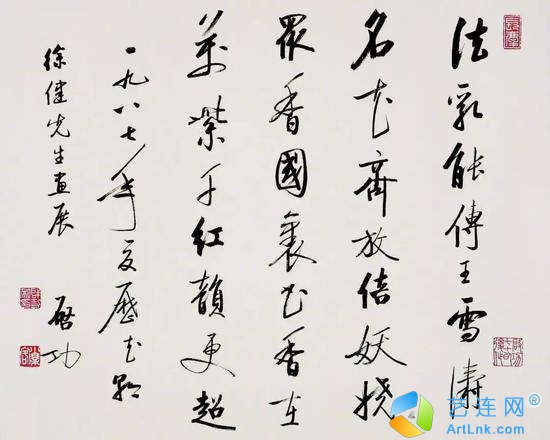 法乳能傳王雪濤
名花齊放倍妖嬈
眾香國裏花香在
萬紫千紅韻更超
一九八七年夏歷花朝
徐健先生畫展
啟功
艺连网
ArtLnk.com